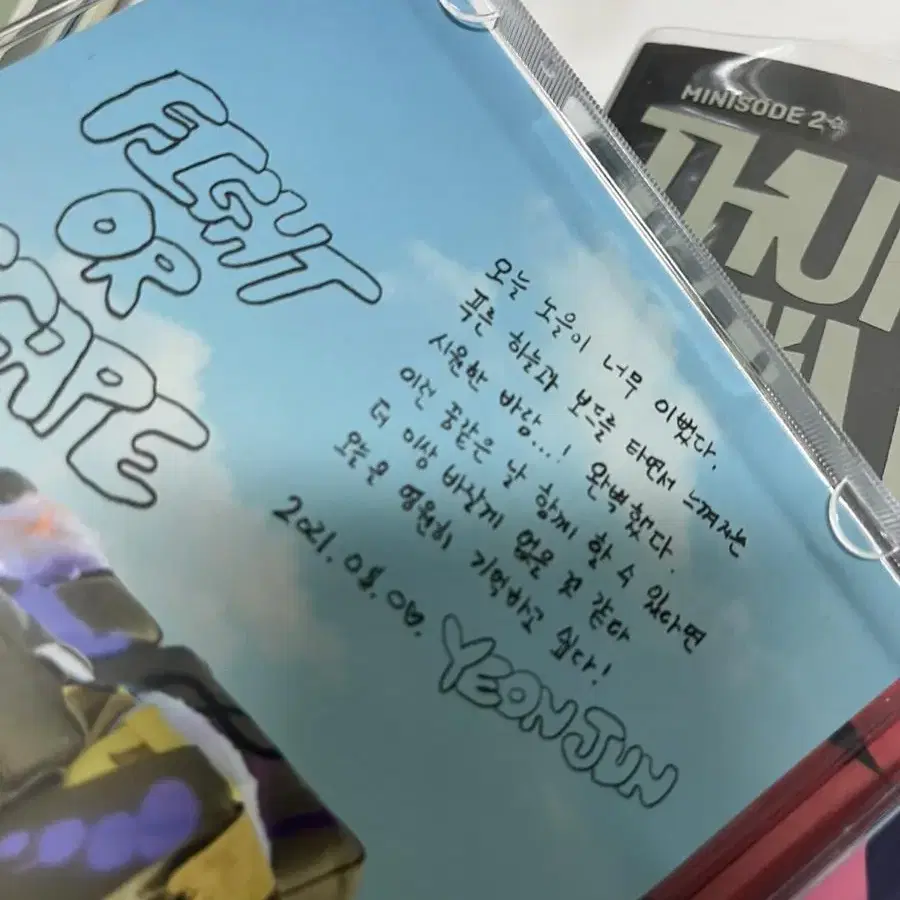 FIGHT
OR
오늘 노을이 너무 이뻤다.
푸른 하늘과 보드를 타면서 느껴지는
시원한 바람...! 완벽했다.
이런 꿈같은 날 함께 할 수 있다면
더 이상 바랄게 없을 것 같다
오늘을 영원히 기억하고 싶다!
2021. 08.
YEONJUN
MINISODE 2